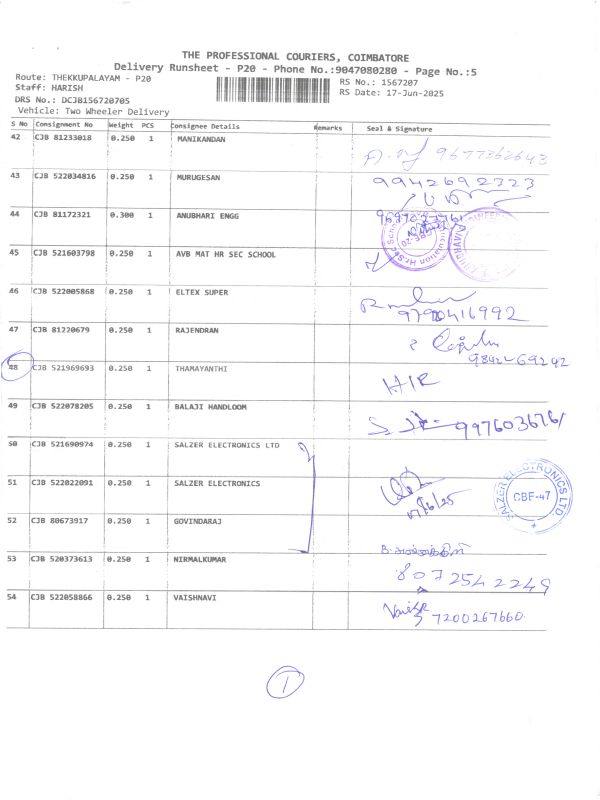 THE PROFESSIONAL COURIERS, COIMBATORE
Delivery Runsheet - P20 - Phone No.:9047080280 - Page No.:5
Route: THEKKUPALAYAM - P20
RS No.: 1567207
Staff: HARISH
RS Date: 17-Jun-2025
DRS No.: DCJB156720705
Vehicle: Two Wheeler Delivery
S No Consignment No Weight PCS Consignee Details Remarks Seal & Signature
42 CJB 81233018 0.250 1 MANIKANDAN
9677362643
43 CJB 522034816 0.250 1 MURUGESAN
9942692323
44 CJB 81172321 0.300 1 ANUBHARI ENGG
45 CJB 521603798 0.250 1 AVB MAT HR SEC SCHOOL
46 CJB 522005868 0.250 1 ELTEX SUPER
9790416992
47 CJB 81220679 0.250 1 RAJENDRAN
98422-69242
48 CJB 521969693 0.250 1 THAMAYANTHI
H/R
49 CJB 522078205 0.250 1 BALAJI HANDLOOM
9976036761
50 CJB 521690974 0.250 1 SALZER ELECTRONICS LTD
51 CJB 522022091 0.250 1 SALZER ELECTRONICS
17/6/25
SALZER ELECTRONICS LTD.
CBE-47
52 CJB 80673917 0.250 1 GOVINDARAJ
53 CJB 520373613 0.250 1 NIRMALKUMAR
8072542249
54 CJB 522058866 0.250 1 VAISHNAVI
7200267660
1